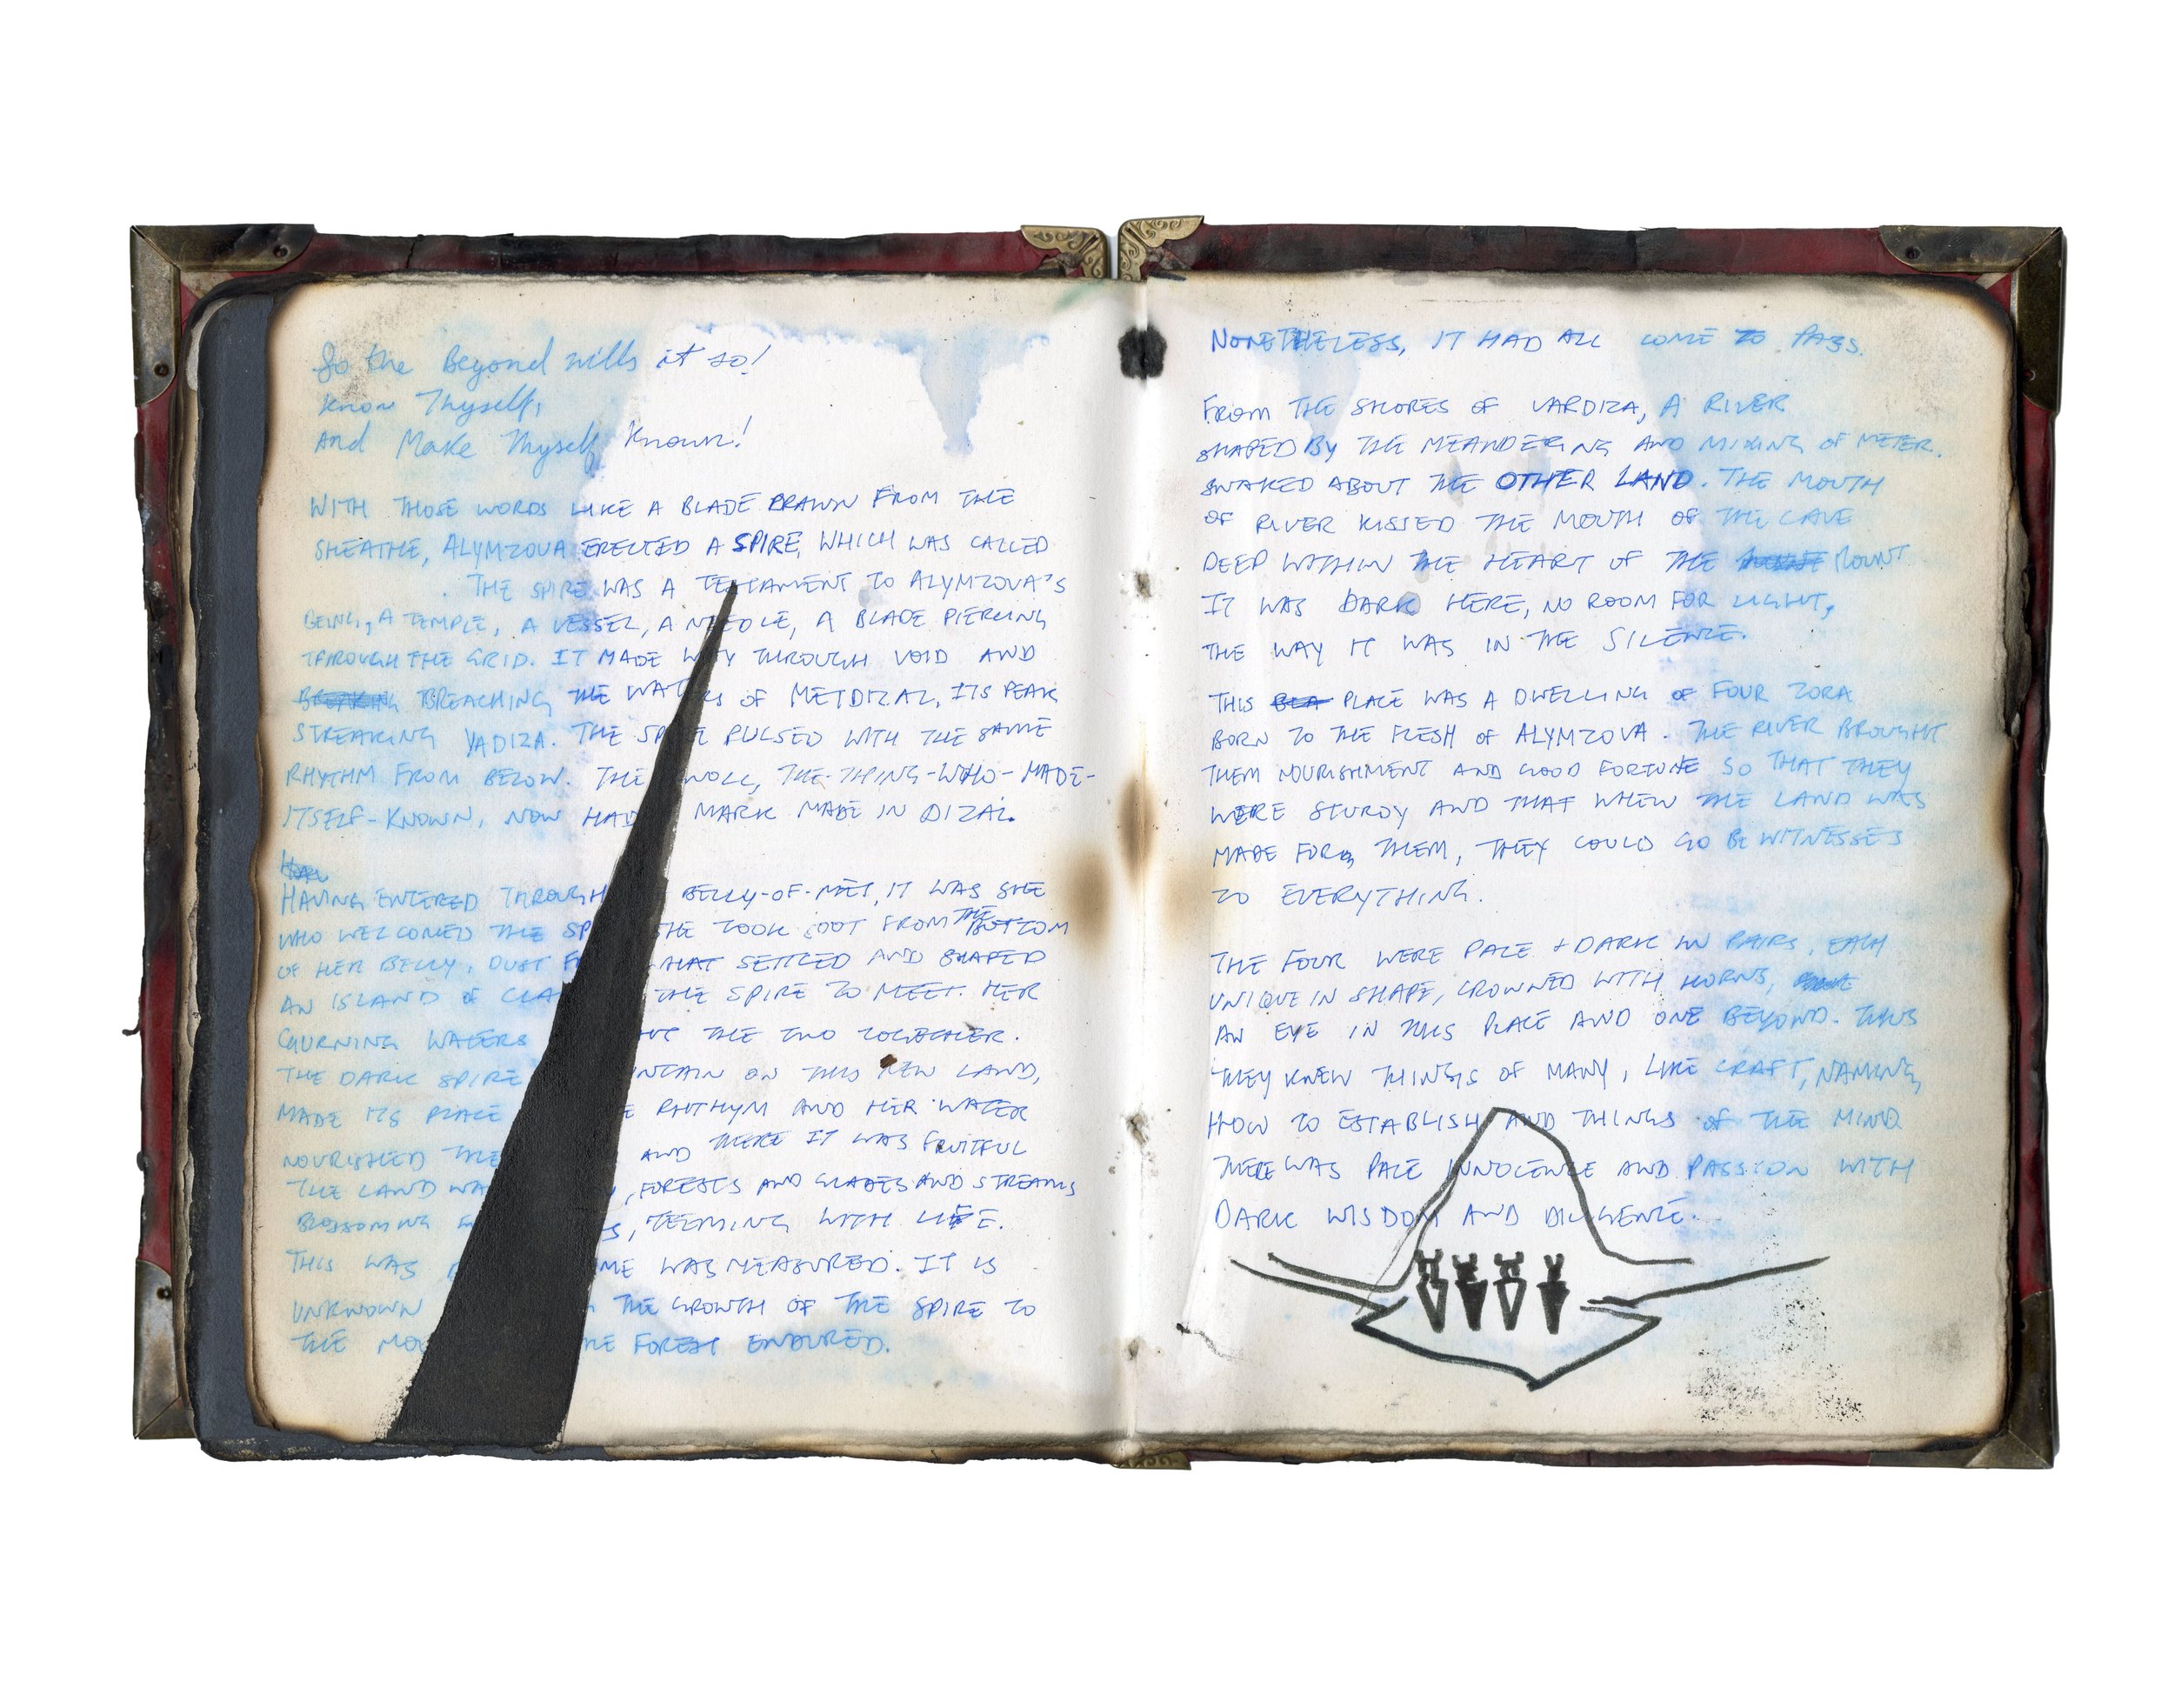 So the Beyond wills it so!
Know Thyself,
And Make Thyself Known!
WITH THOSE WORDS LIKE A BLADE DRAWN FROM THE
SHEATHE, ALYMZOVA ERECTED A SPIRE, WHICH WAS CALLED
. THE SPIRE WAS A TESTAMENT TO ALYMZOVA'S
BEING, A TEMPLE, A VESSEL, A NEEDLE, A BLADE PIERCING
THROUGH THE GRID. IT MADE WAY THROUGH VOID AND
BREACHING THE WATERS OF METDIZAL, ITS PEAK
STREAKING VADIZA. THE SPIRE PULSED WITH THE SAME
RHYTHM FROM BELOW. THE THE-THING-WHO-MADE-
ITSELF-KNOWN, NOW HAD MARK MADE IN DIZAL.
HAVING ENTERED THROUGH BELLY-OF-MET, IT WAS SHE
WHO WELCOMED THE TOOK FROM THE BOTTOM
OF HER BELLY, DUST WHAT SETTLED AND SHAPED
AN ISLAND OF THE SPIRE TO MEET. HER
CHURNING WATERS THE TWO TOGETHER.
THE DARK SPIRE ON THIS NEW LAND,
MADE ITS PLACE RHTHYM AND HER WATER
NOURISHED THE AND THERE IT WAS FRUITFUL
THE LAND , FORESTS AND GLADES AND STREAMS
BLOSSOMING , TEEMING WITH LIFE.
THIS WAS WAS MEASURED. IT IS
UNKNOWN THE GROWTH OF THE SPIRE TO
THE FOREST ENDURED.
NONETHELESS, IT HAD ALL COME TO PASS.
FROM THE SHORES OF VARDIZA, A RIVER
SHAPED BY THE MEANDERING AND MIXING OF METER.
SNAKED ABOUT THE OTHER LAND. THE MOUTH
OF RIVER KISSED THE MOUTH OF THE CAVE
DEEP WITHIN THE HEART OF THE MOUNT
IT WAS DARK HERE, NO ROOM FOR LIGHT,
THE WAY IT WAS IN THE SILENCE.
THIS PLACE WAS A DWELLING OF FOUR ZORA
BORN TO THE FLESH OF ALYMZOVA. THE RIVER BROUGHT
THEM NOURISHMENT AND GOOD FORTUNE SO THAT THEY
WERE STURDY AND THAT WHEN THE LAND WAS
MADE FOR THEM, THEY COULD GO BE WITNESSES
TO EVERYTHING.
THE FOUR WERE PALE + DARK IN PAIRS. EACH
UNIQUE IN SHAPE, CROWNED WITH HORNS,
AN EYE IN THIS PLACE AND ONE BEYOND. THUS
THEY KNEW THINGS OF MANY, LIKE CRAFT, NAMING,
HOW TO ESTABLISH AND THINGS OF THE MIND
THERE WAS PALE INNOCENCE AND PASSION WITH
DARK WISDOM AND DILIGENCE.